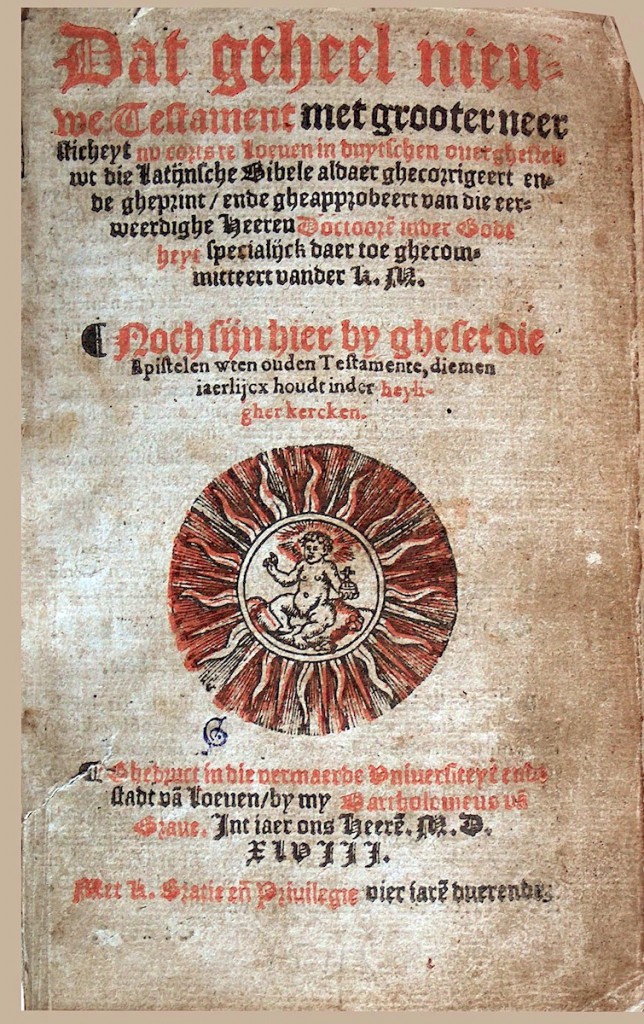 Dat geheel nieu-
we Testament met grooter neer
sticheyt nv corts te Loeuen in duytschen ouerghestelt
wt die Latijnsche Bibele aldaer ghecorrigeert en-
de gheprint / ende gheapprobeert van die eer-
weerdighe Heeren Doctoorē inder Godt
heyt specialijck daer toe ghecom-
mitteert vander K. M.
¶ Noch sijn hier by gheset die
Epistelen wten ouden Testamente, diemen
iaerlijcx houdt inder heyli-
gher kercken.
¶ Ghedruct in die vermaerde Vniuersiteyt ende
stadt vā Loeuen / by my Bartholomeus vā
Graue. Int iaer ons Heerē. M. D.
XLVIII.
Met K. Gratie eñ Priuilegie vier iarē duerende.